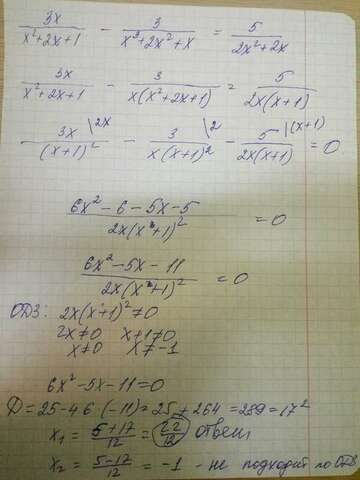 3x/(x²+2x+1) - 3/(x³+2x²+x) = 5/(2x²+2x)
3x/(x²+2x+1) - 3/(x(x²+2x+1)) = 5/(2x(x+1))
3x\2x/(x+1)² - 3\2/(x(x+1)²) - 5\(x+1)/(2x(x+1)) = 0
(6x²-6-5x-5)/(2x(x+1)²) = 0
(6x²-5x-11)/(2x(x+1)²) = 0
ОДЗ: 2x(x+1)²≠0
2x≠0 x+1≠0
x≠0 x≠-1
6x²-5x-11=0
D=25-4·6·(-11)=25+264=289=17²
x₁ = (5+17)/12 = 22/12 ответ
x₂ = (5-17)/12 = -1 - не подходит по ОДЗ